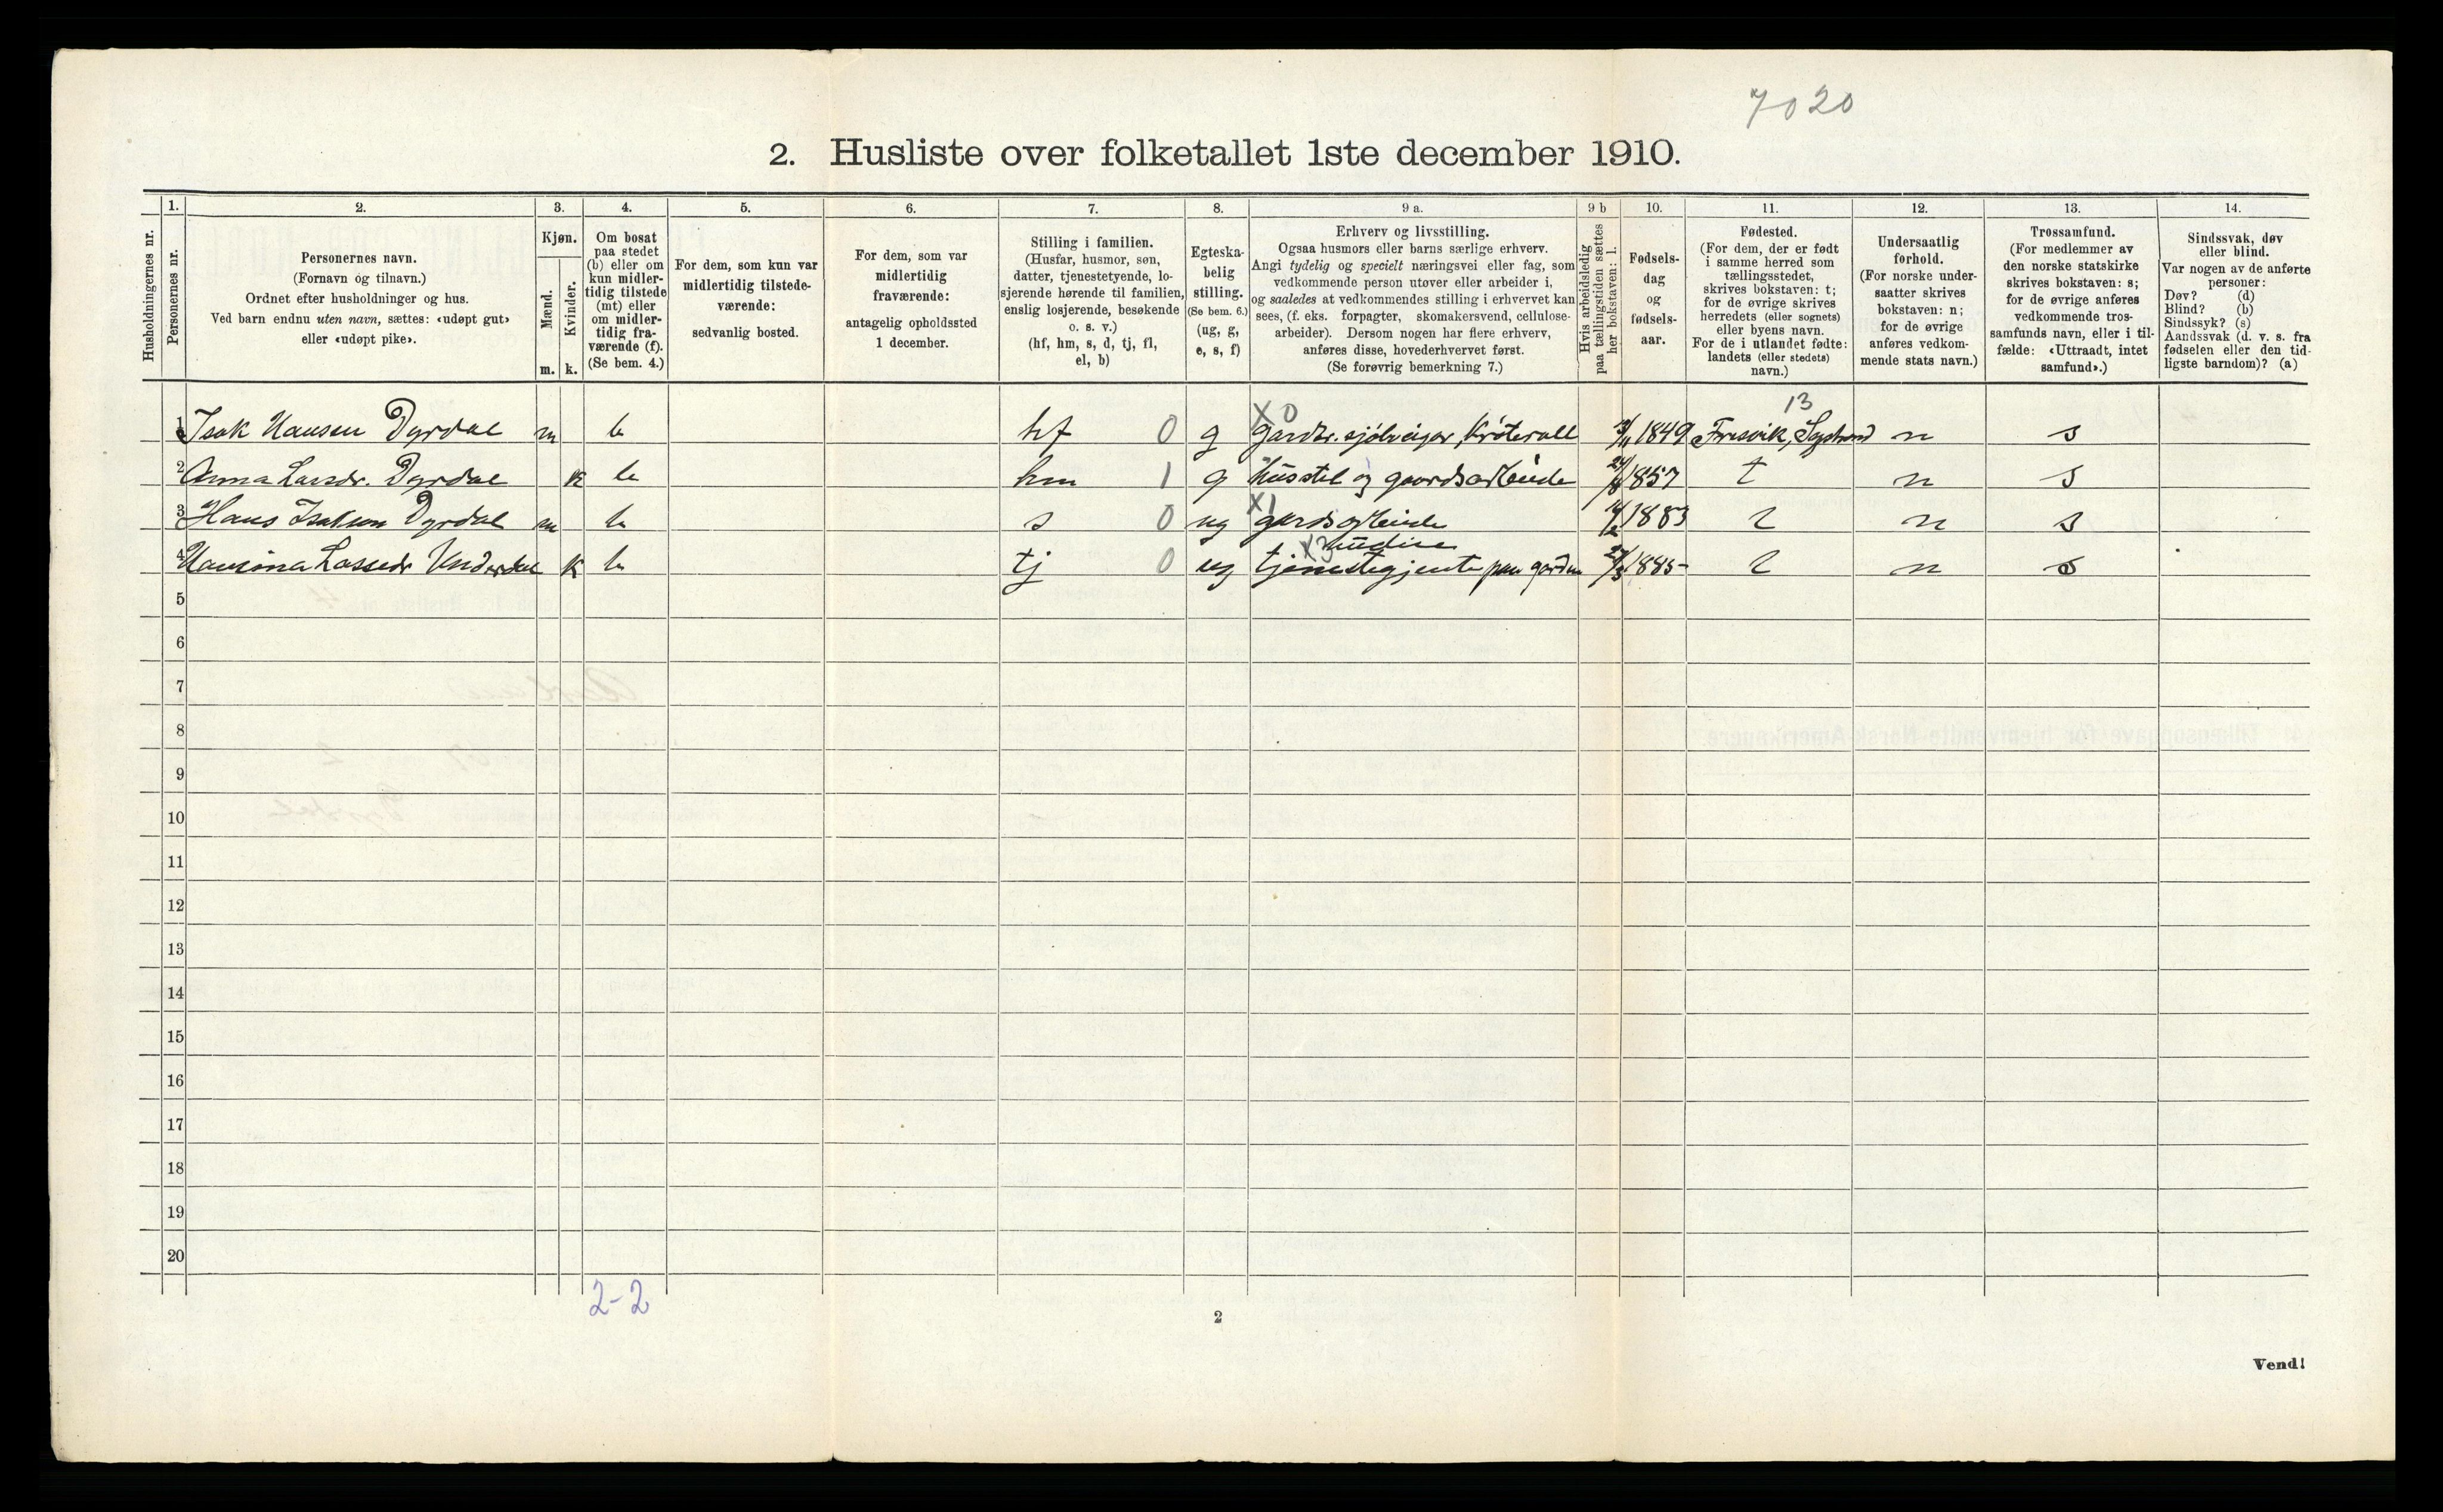 7020
2. Husliste over folketallet 1ste december 1910.
1. 2. 3. 4. 5. 6. 7. 8. 9 a. 9 b 10. 11. 12. 13. 14.
Husholdningernes nr.
Personernes nr.
Personernes navn.
(Fornavn og tilnavn.)
Ordnet efter husholdninger og hus.
Ved barn endnu uten navn, sættes: «udøpt gut»
eller «udøpt pike».
Kjøn.
Mænd.
Kvinder.
m. k.
Om bosat
paa stedet
(b) eller om
kun midler-
tidig tilstede
(mt) eller
om midler-
tidig fra-
værende (f).
(Se bem. 4.)
For dem, som kun var
midlertidig tilstede-
værende:
sedvanlig bosted.
For dem, som var
midlertidig
fraværende:
antagelig opholdssted
1 december.
Stilling i familien.
(Husfar, husmor, søn,
datter, tjenestetyende, lo-
sjerende hørende til familien,
enslig losjerende, besøkende
o. s. v.)
(hf, hm, s, d, tj, fl,
el, b)
Egteska-
belig
stilling.
(Se bem. 6.)
(ug, g,
e, s, f)
Erhverv og livsstilling.
Ogsaa husmors eller barns særlige erhverv.
Angi tydelig og specielt næringsvei eller fag, som
vedkommende person utøver eller arbeider i,
og saaledes at vedkommendes stilling i erhvervet kan
sees, (f. eks. forpagter, skomakersvend, cellulose-
arbeider). Dersom nogen har flere erhverv,
anføres disse, hovederhvervet først.
(Se forøvrig bemerkning 7.)
Hvis arbeidsledig
paa tællingstiden sættes
her bokstaven: l.
Fødsels-
dag
og
fødsels-
aar.
Fødested.
(For dem, der er født
i samme herred som
tællingsstedet,
skrives bokstaven: t;
for de øvrige skrives
herredets (eller sognets)
eller byens navn.
For de i utlandet fødte:
landets (eller stedets)
navn.)
Undersaatlig
forhold.
(For norske under-
saatter skrives
bokstaven: n;
for de øvrige
anføres vedkom-
mende stats navn.)
Trossamfund.
(For medlemmer av
den norske statskirke
skrives bokstaven: s;
for de øvrige anføres
vedkommende tros-
samfunds navn, eller i til-
fælde: «Uttraadt, intet
samfund».)
Sindssvak, døv
eller blind.
Var nogen av de anførte
personer:
Døv? (d)
Blind? (b)
Sindssyk? (s)
Aandssvak (d. v. s. fra
fødselen eller den tid-
ligste barndom)? (a)
X0 13
1 Isak Hansen Dyrdal m b hf 0 g gardbr. sjölveigar, 1849 Fresvik, n s
2 Anna Larsdr. Dyrdal k b hm 1 g husstel og gaardsarbeide 1857 t n s
X1
3 Hans Isakson Dyrdal m b s 0 ug gardsarbeide 1883 n s
X3
4 Lassedr Underdal k b tj 0 ug tjenestegjente paa garden 1885 n s
5
6
7
8
9
10
11
12
13
14
15
16
17
18
19
20
2-2
2
Vend!